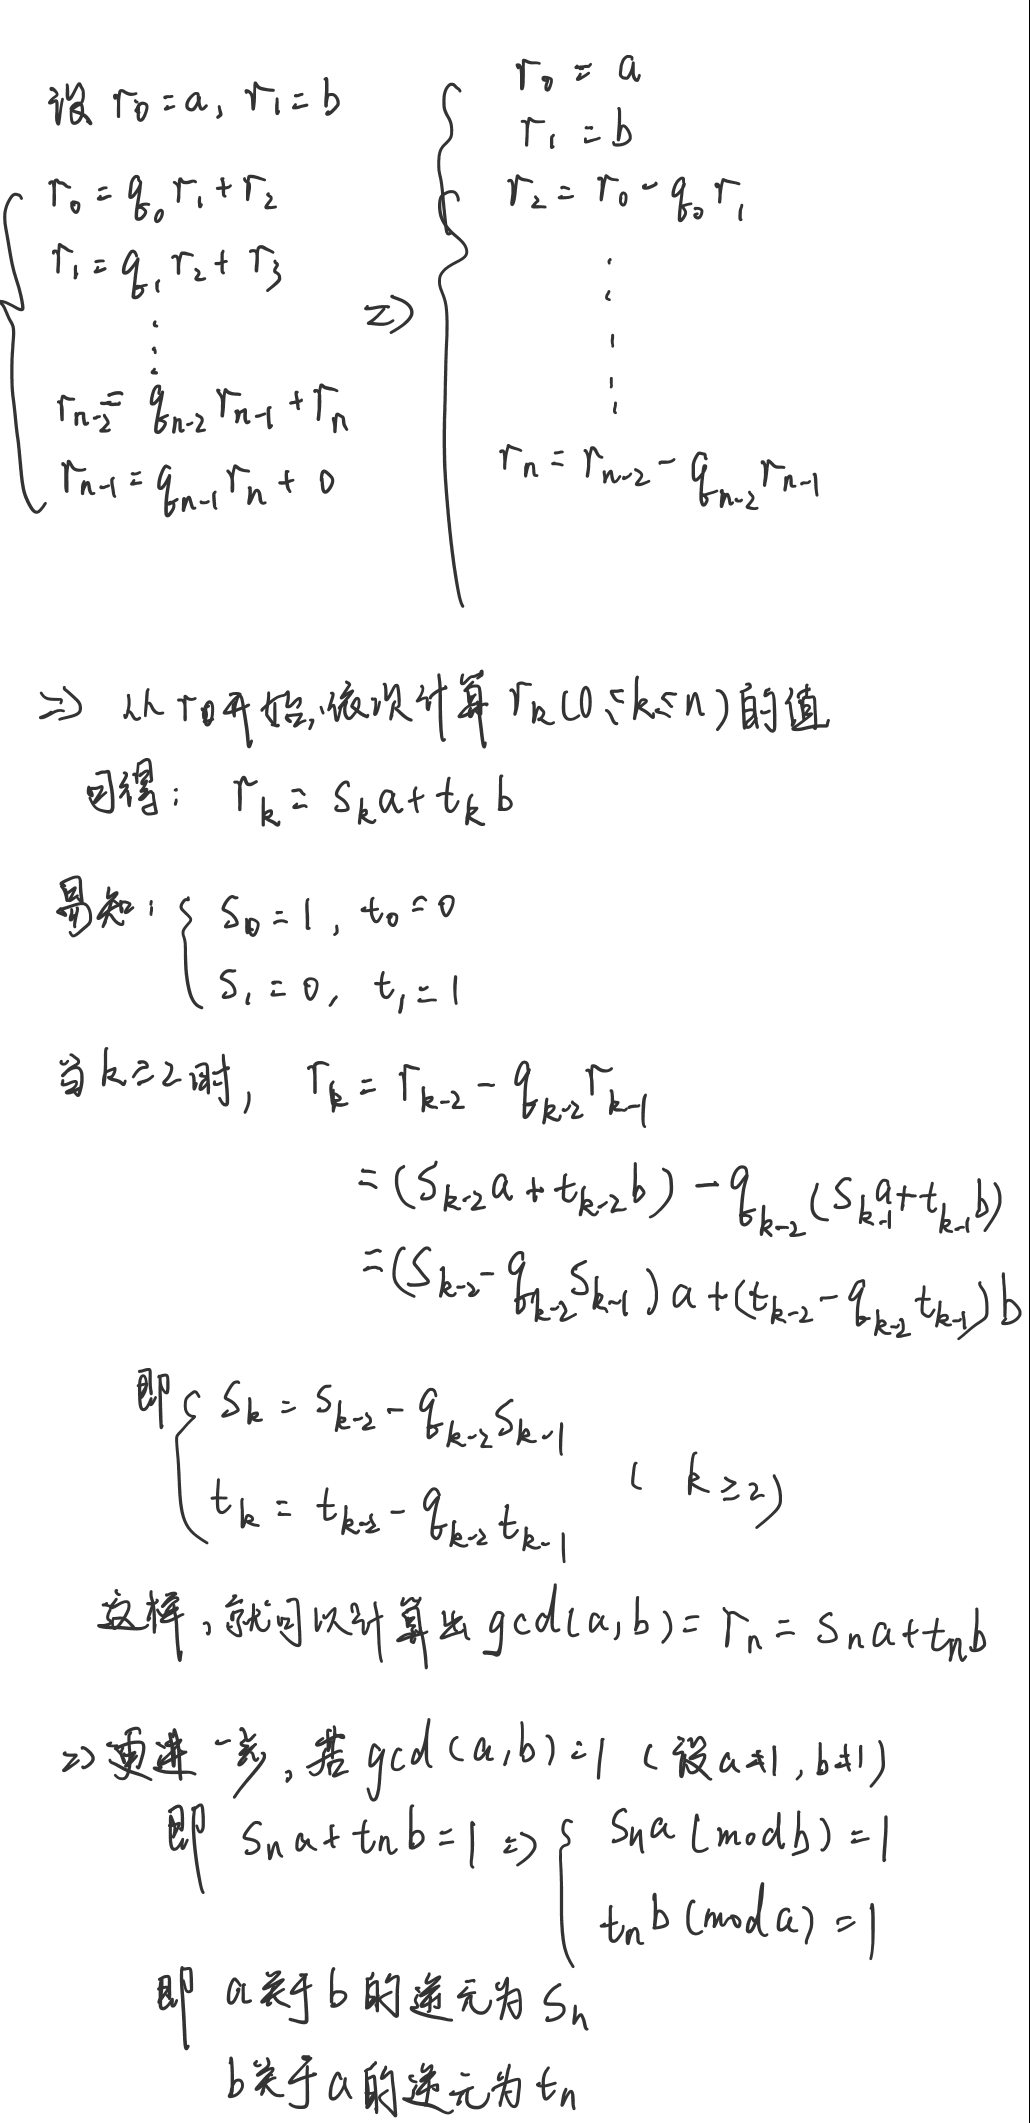 设 r₀ = a, r₁ = b
r₀ = q₀ r₁ + r₂
r₁ = q₁ r₂ + r₃
⋮
rₙ₋₂ = qₙ₋₂ rₙ₋₁ + rₙ
rₙ₋₁ = qₙ₋₁ rₙ + 0
⇒
r₀ = a
r₁ = b
r₂ = r₀ - q₀ r₁
⋮
rₙ = rₙ₋₂ - qₙ₋₂ rₙ₋₁
⇒ 从 r₀ 开始,依次计算 rₖ (0≤k≤n) 的值
可得: rₖ = sₖ a + tₖ b
易知: { s₀ = 1, t₀ = 0
s₁ = 0, t₁ = 1
当 k≥2 时, rₖ = rₖ₋₂ - qₖ₋₂ rₖ₋₁
= (sₖ₋₂ a + tₖ₋₂ b) - qₖ₋₂ (sₖ₋₁ a + tₖ₋₁ b)
= (sₖ₋₂ - qₖ₋₂ sₖ₋₁) a + (tₖ₋₂ - qₖ₋₂ tₖ₋₁) b
即 { sₖ = sₖ₋₂ - qₖ₋₂ sₖ₋₁
tₖ = tₖ₋₂ - qₖ₋₂ tₖ₋₁ (k≥2)
这样,就可以计算出 gcd(a,b) = rₙ = sₙ a + tₙ b
⇒ 更进一步,若 gcd(a,b) = 1 (设 a≠1, b≠1)
即 sₙ a + tₙ b = 1 ⇒ { sₙ a (mod b) = 1
tₙ b (mod a) = 1
即 a关于 b 的逆元为 sₙ
b关于 a 的逆元为 tₙ